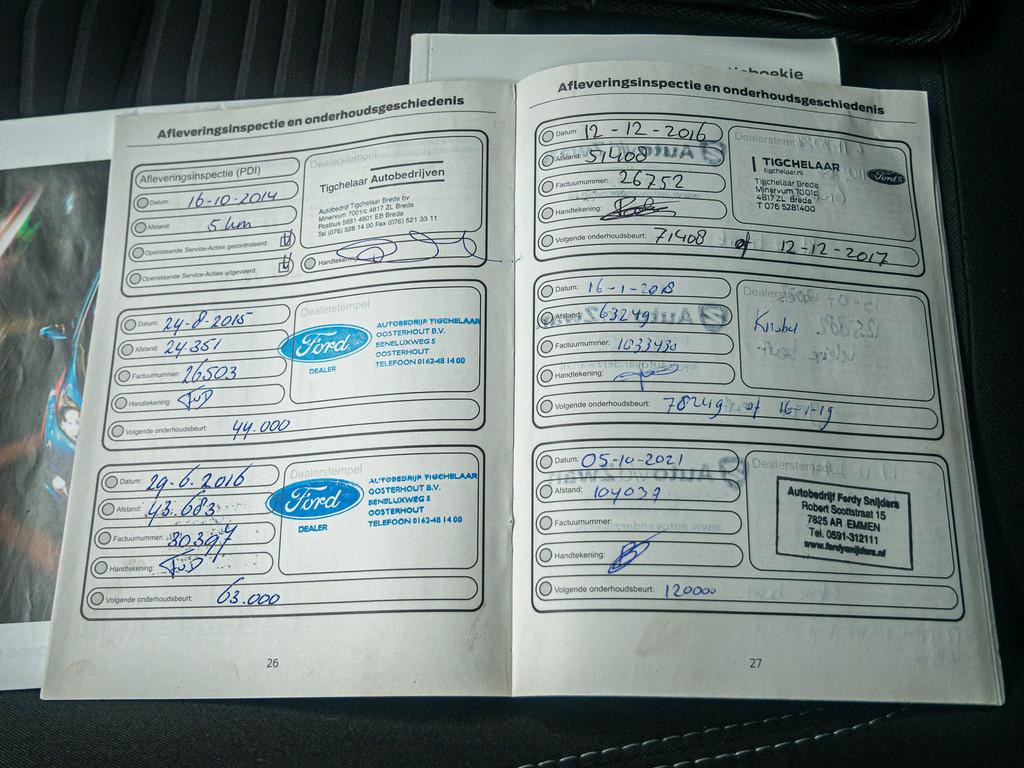 tieboekje
Afleveringsinspectie en onderhoudsgeschiedenis
Afleveringsinspectie (PDI)
Datum: 16-10-2014
Afstand: 5 km
Openstaande Service-Acties gecontroleerd:
Openstaande Service-Acties uitgevoerd:
Dealerstempel
Tigchelaar Autobedrijven
Autobedrijf Tigchelaar Breda bv
Minervum 7001c 4817 ZL Breda
Postbus 5681 4801 EB Breda
Tel (076) 528 14 00 Fax (076) 521 33 11
Handtekening:
Datum: 24-8-2015
Afstand: 24.351
Factuurnummer: 26503
Handtekening: FvD
Volgende onderhoudsbeurt: 44.000
Dealerstempel
Ford
DEALER
AUTOBEDRIJF TIGCHELAAR
OOSTERHOUT B.V.
BENELUXWEG 5
OOSTERHOUT
TELEFOON 0162-48 14 00
Datum: 29-6-2016
Afstand: 43.683
Factuurnummer: 30397
Handtekening: FvD
Volgende onderhoudsbeurt: 63.000
Dealerstempel
Ford
DEALER
AUTOBEDRIJF TIGCHELAAR
OOSTERHOUT B.V.
BENELUXWEG 5
OOSTERHOUT
TELEFOON 0162-48 14 00
26
Afleveringsinspectie en onderhoudsgeschiedenis
Datum: 12-12-2016
Afstand: 51408
Factuurnummer: 26752
Handtekening:
Volgende onderhoudsbeurt: 71408 of 12-12-2017
Dealerstempel
TIGCHELAAR
tigchelaar.nl
Ford
Tigchelaar Breda
Minervum 7001c
4817 ZL Breda
T 076 5281400
Datum: 16-1-2018
Afstand: 63249
Factuurnummer: 1033430
Handtekening:
Volgende onderhoudsbeurt: 78249 of 16-1-19
Dealerstempel
Knubel
Datum: 05-10-2021
Afstand: 104039
Factuurnummer:
Handtekening:
Volgende onderhoudsbeurt: 120000
Dealerstempel
Autobedrijf Ferdy Snijders
Robert Scottstraat 15
7825 AR EMMEN
Tel. 0591-312111
www.ferdysnijders.nl
27